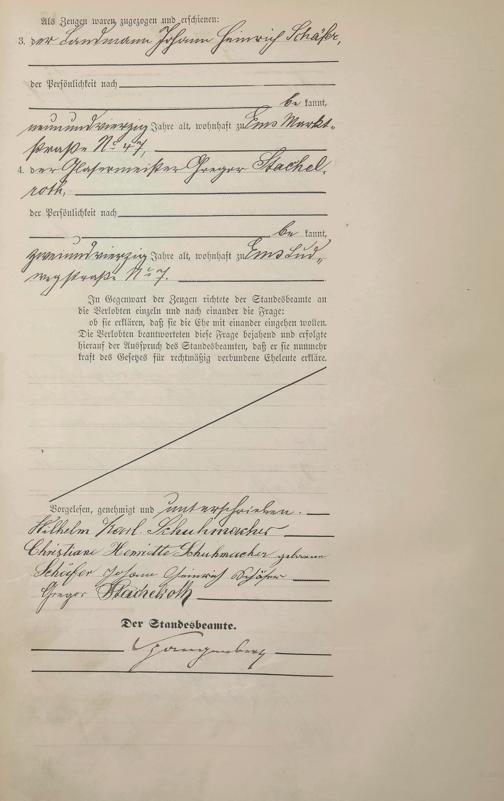 Als Zeugen waren zugezogen und erschienen:
3. der Landmann Johann Heinrich Schäfer,
der Persönlichkeit nach
be kannt,
neunundvierzig Jahre alt, wohnhaft zu Ems Markt-
straße No 47,
4. der Glasermeister Gregor Stachel-
roth,
der Persönlichkeit nach
be kannt,
zweiundvierzig Jahre alt, wohnhaft zu Ems Lud-
wegstraße No 7.
In Gegenwart der Zeugen richtete der Standesbeamte an
die Verlobten einzeln und nach einander die Frage:
ob sie erklären, daß sie die Ehe mit einander eingehen wollen.
Die Verlobten beantworteten diese Frage bejahend und erfolgte
hierauf der Ausspruch des Standesbeamten, daß er sie nunmehr
kraft des Gesetzes für rechtmäßig verbundene Eheleute erkläre.
Vorgelesen, genehmigt und unterschrieben.
Wilhelm Karl Schuhmacher
Christiane Henriette Schuhmacher geborene
Schäfer Johann Heinrich Schäfer
Gregor Stachelroth
Der Standesbeamte.
Spangenberg